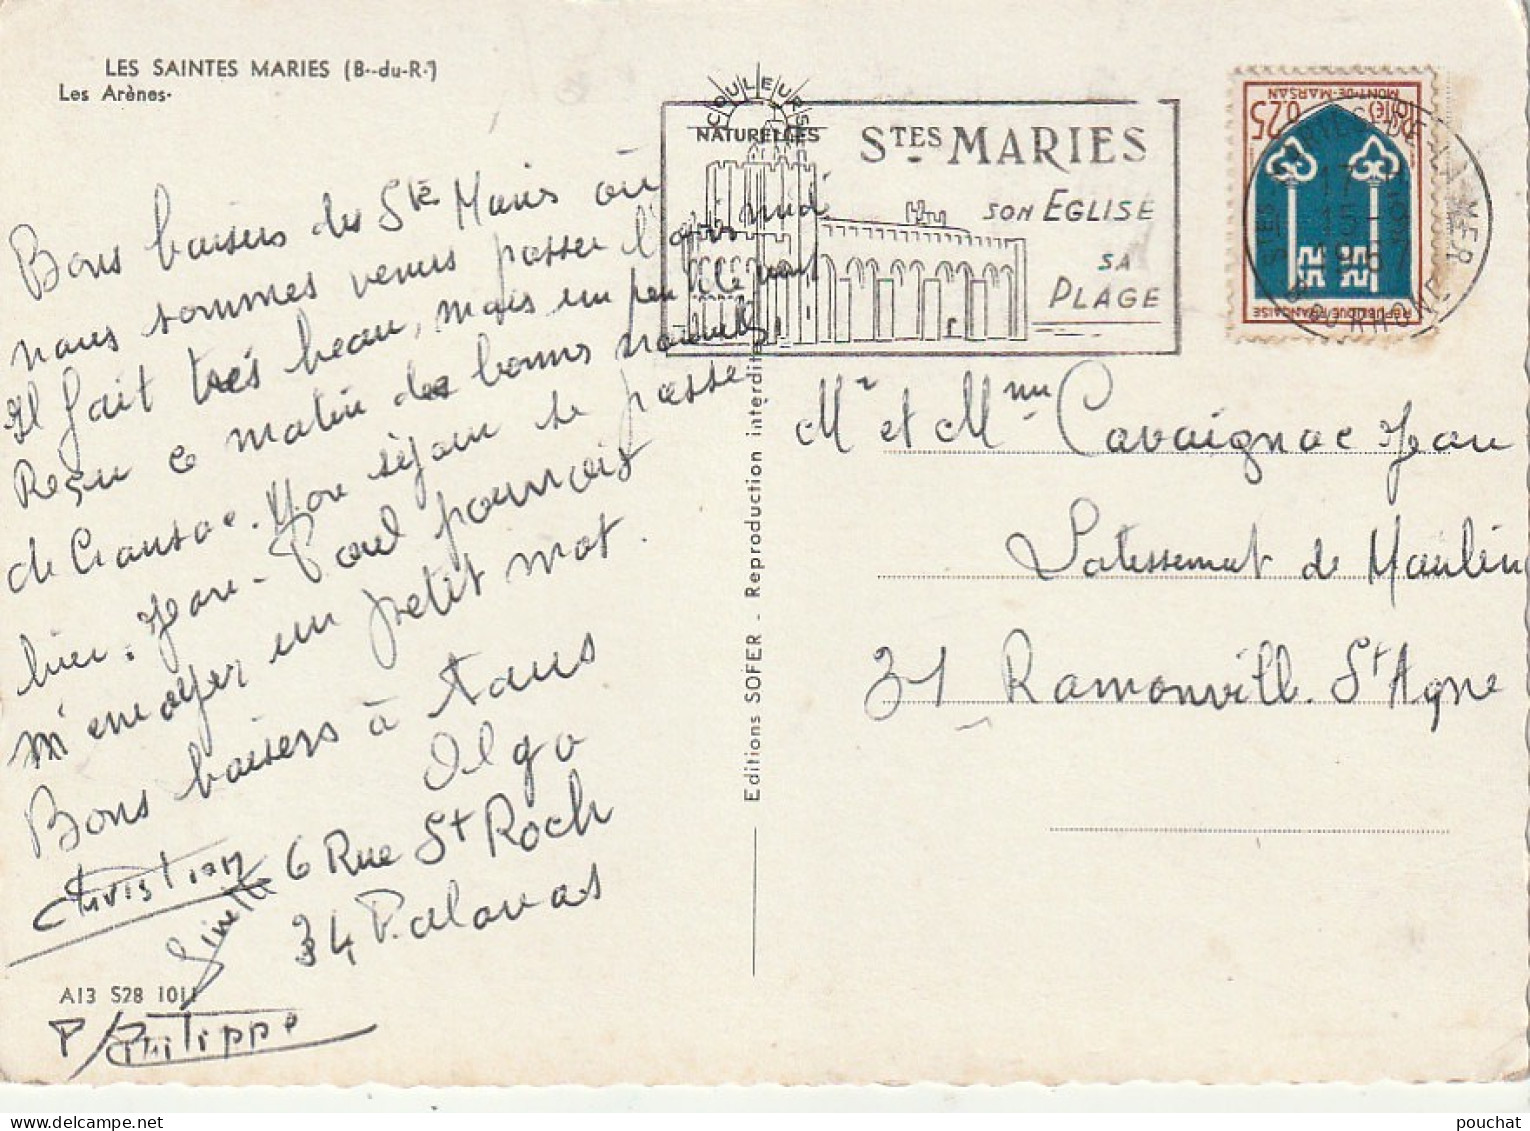 LES SAINTES MARIES (B.-du-R.)
Les Arènes.
COULEURS
NATURELLES
STES MARIES
SON EGLISE
SA
PLAGE
0.25
MONT-DE-MARSAN
REPUBLIQUE FRANÇAISE
Bons baisers des Stes Maries où
nous sommes venus passer l'après midi
Il fait très beau, mais un peu de vent
Reçu ce matin des bonnes nouvelles
de Cransac. Mon séjour se passe
bien. Jean-Paul pourrait
m'envoyer un petit mot.
Bons baisers à tous
Olga
Christian
Ginette
6 Rue St Roch
34 Palavas
A13 S28 1011
P/Philippe
Editions SOFER - Reproduction interdite
Mr et Mme Cavaignac Jean
Lotissement de Maulin
31 Ramonville St Agne
pouchat